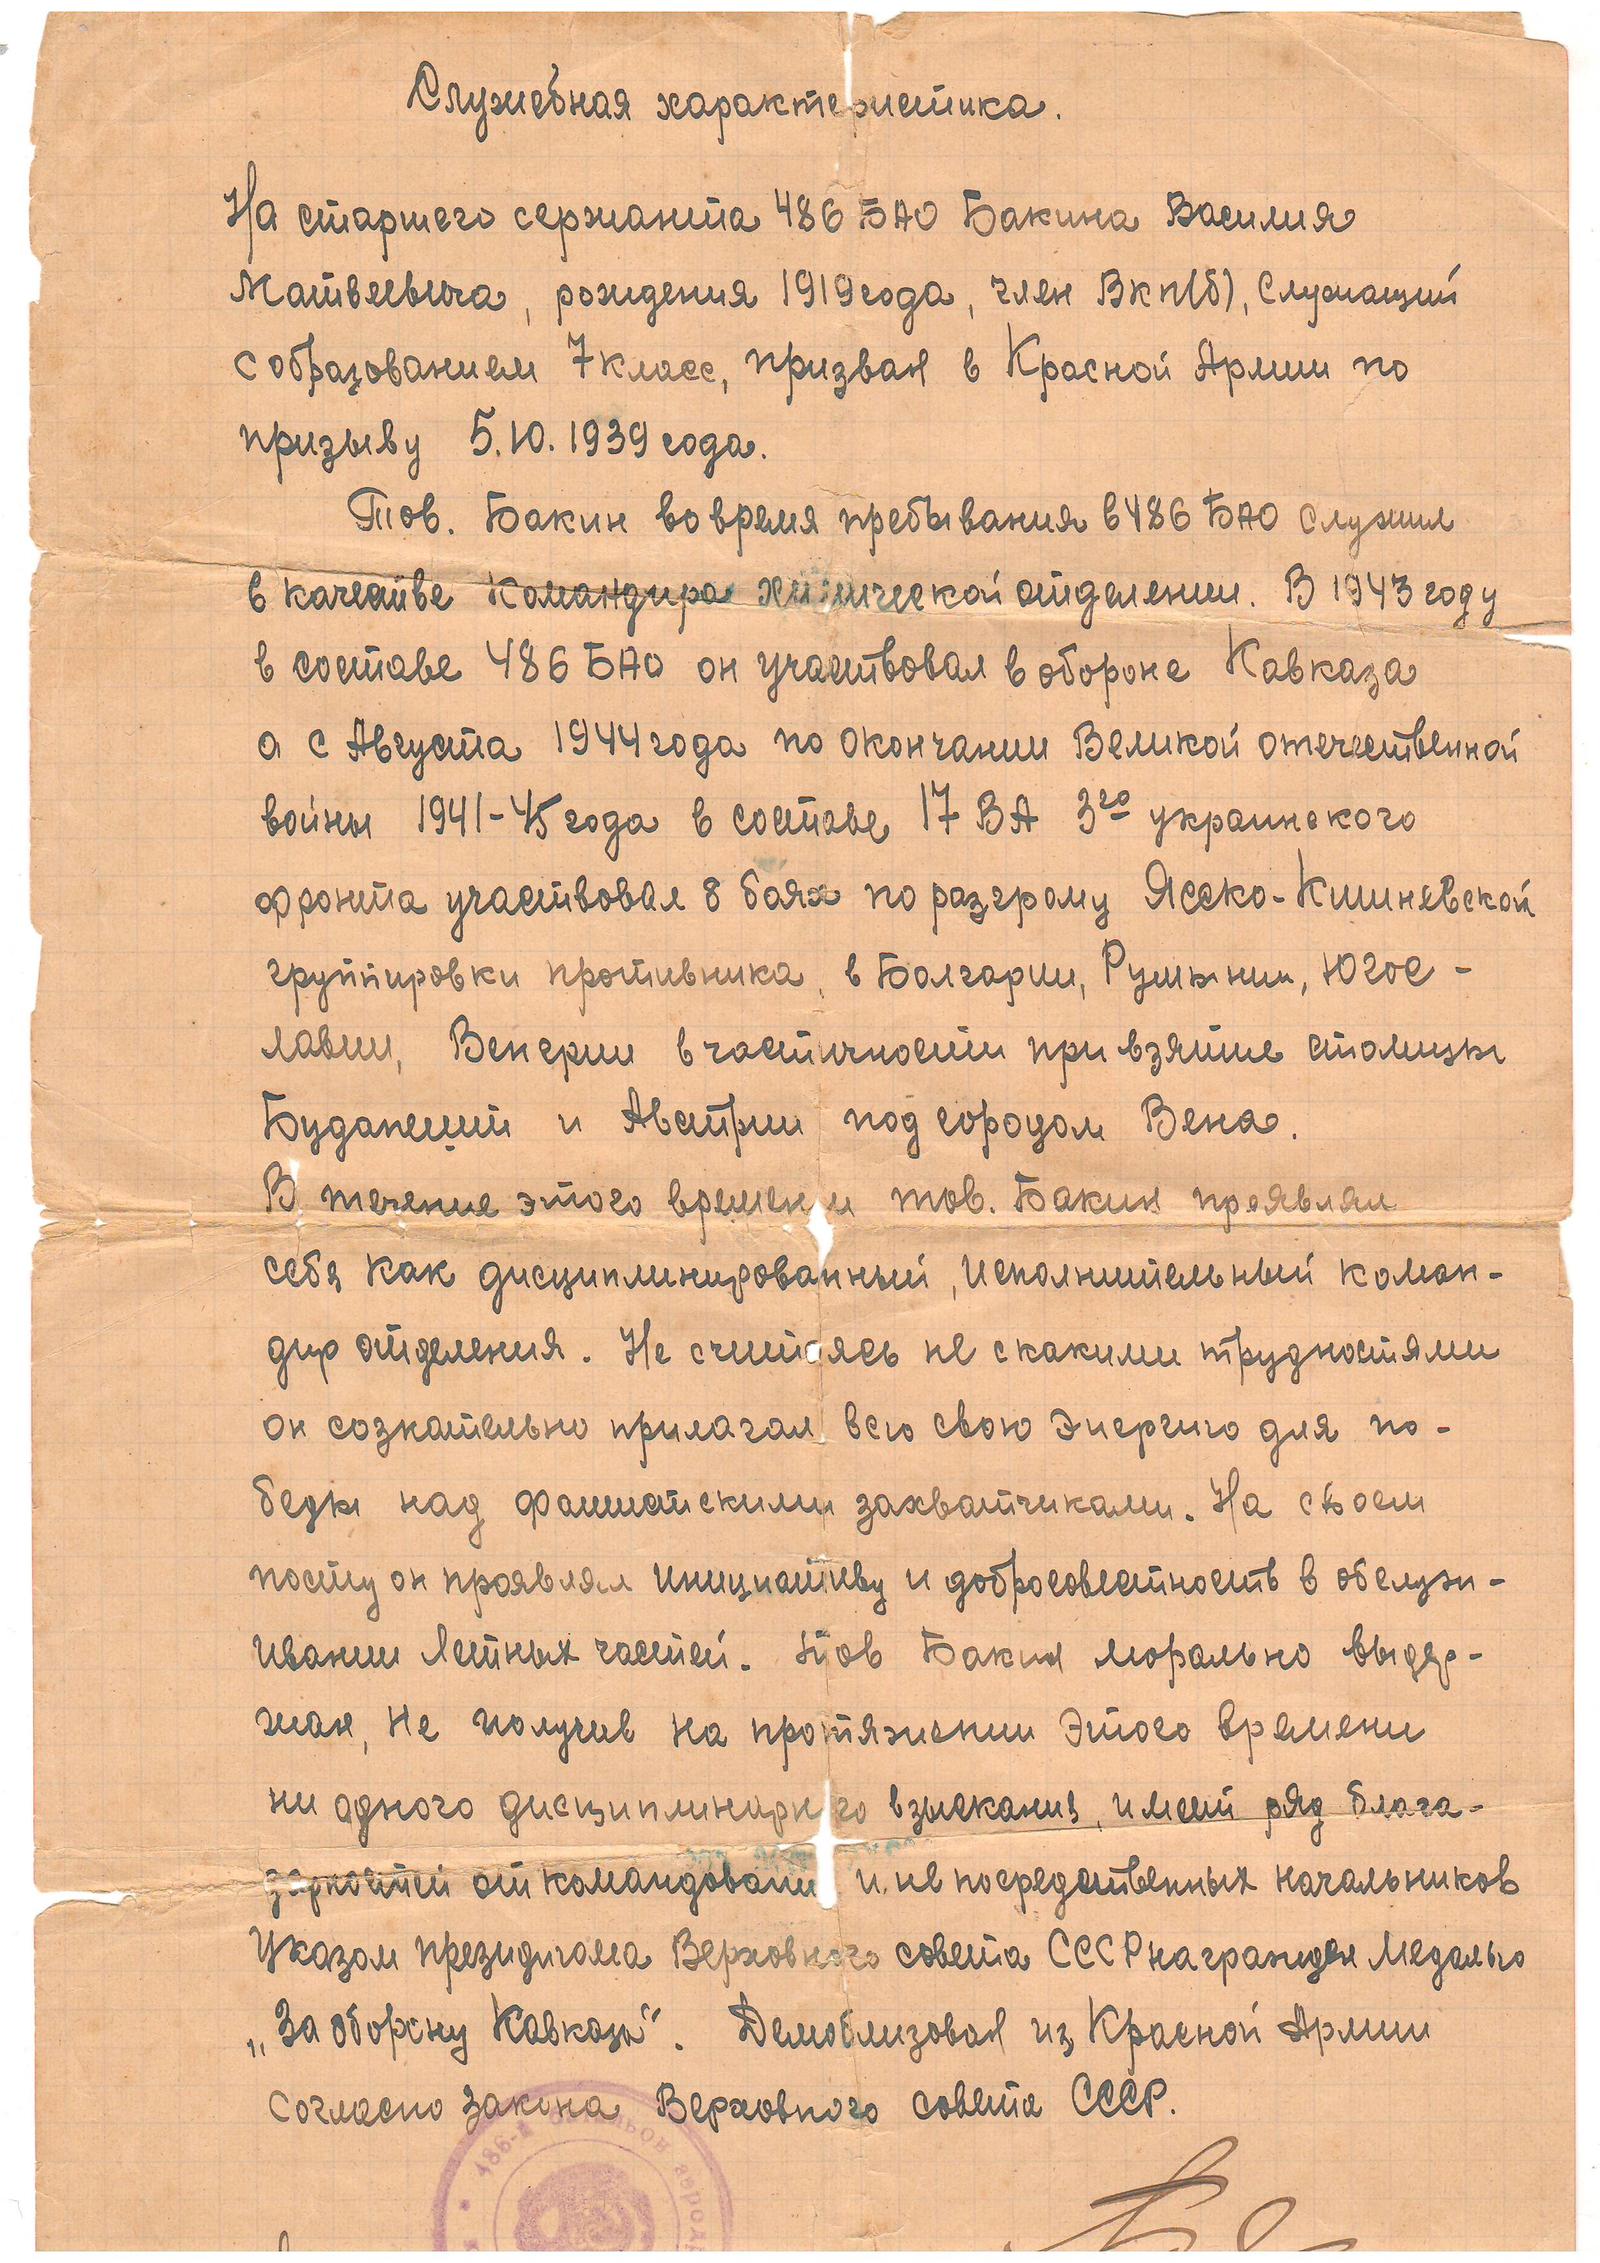 Служебная характеристика.
На старшего сержанта 486 БАО Бакина Василия
Матвеевича, рождения 1919 года, член ВКП(б), Служащий
с образованием 7 класс, призван в Красной Армии по
призыву 5.10.1939 года.
Тов. Бакин во время пребывания в 486 БАО служил
в качестве командира химической отделении. В 1943 году
в составе 486 БАО он участвовал в обороне Кавказа
а с Августа 1944 года по окончании Великой отечественной
войны 1941-45 года в составе 17 ВА 3го украинского
фронта участвовал в боях по разгрому Ясско-Кишиневской
группировки противника, в Болгарии, Румынии, Югос-
лавии, Венгрии в частичности при взятие столицы
Будапешт и Австрии под городом Вена.
В течение этого времени тов. Бакин проявлял
себя как дисциплинированный, исполнительный коман-
дир отделения. Не считаясь не с какими трудностями
он сознательно прилагал всю свою энергию для по-
беды над фашистскими захватчиками. На своем
посту он проявлял инициативу и добросовестность в обслужи-
ивании Летных частей. Тов Бакин морально выдер-
жан, не получив на протяжении этого времени
ни одного дисциплинарного взыскания, имеет ряд блага-
дарностей от командовании и не посредственных начальников
Указом президиума Верховного совета СССР награжден Медалью
„За оборону Кавказа“. Демоблизован из Красной Армии
Согласно закона Верховного совета СССР.
486-й батальон аэрод